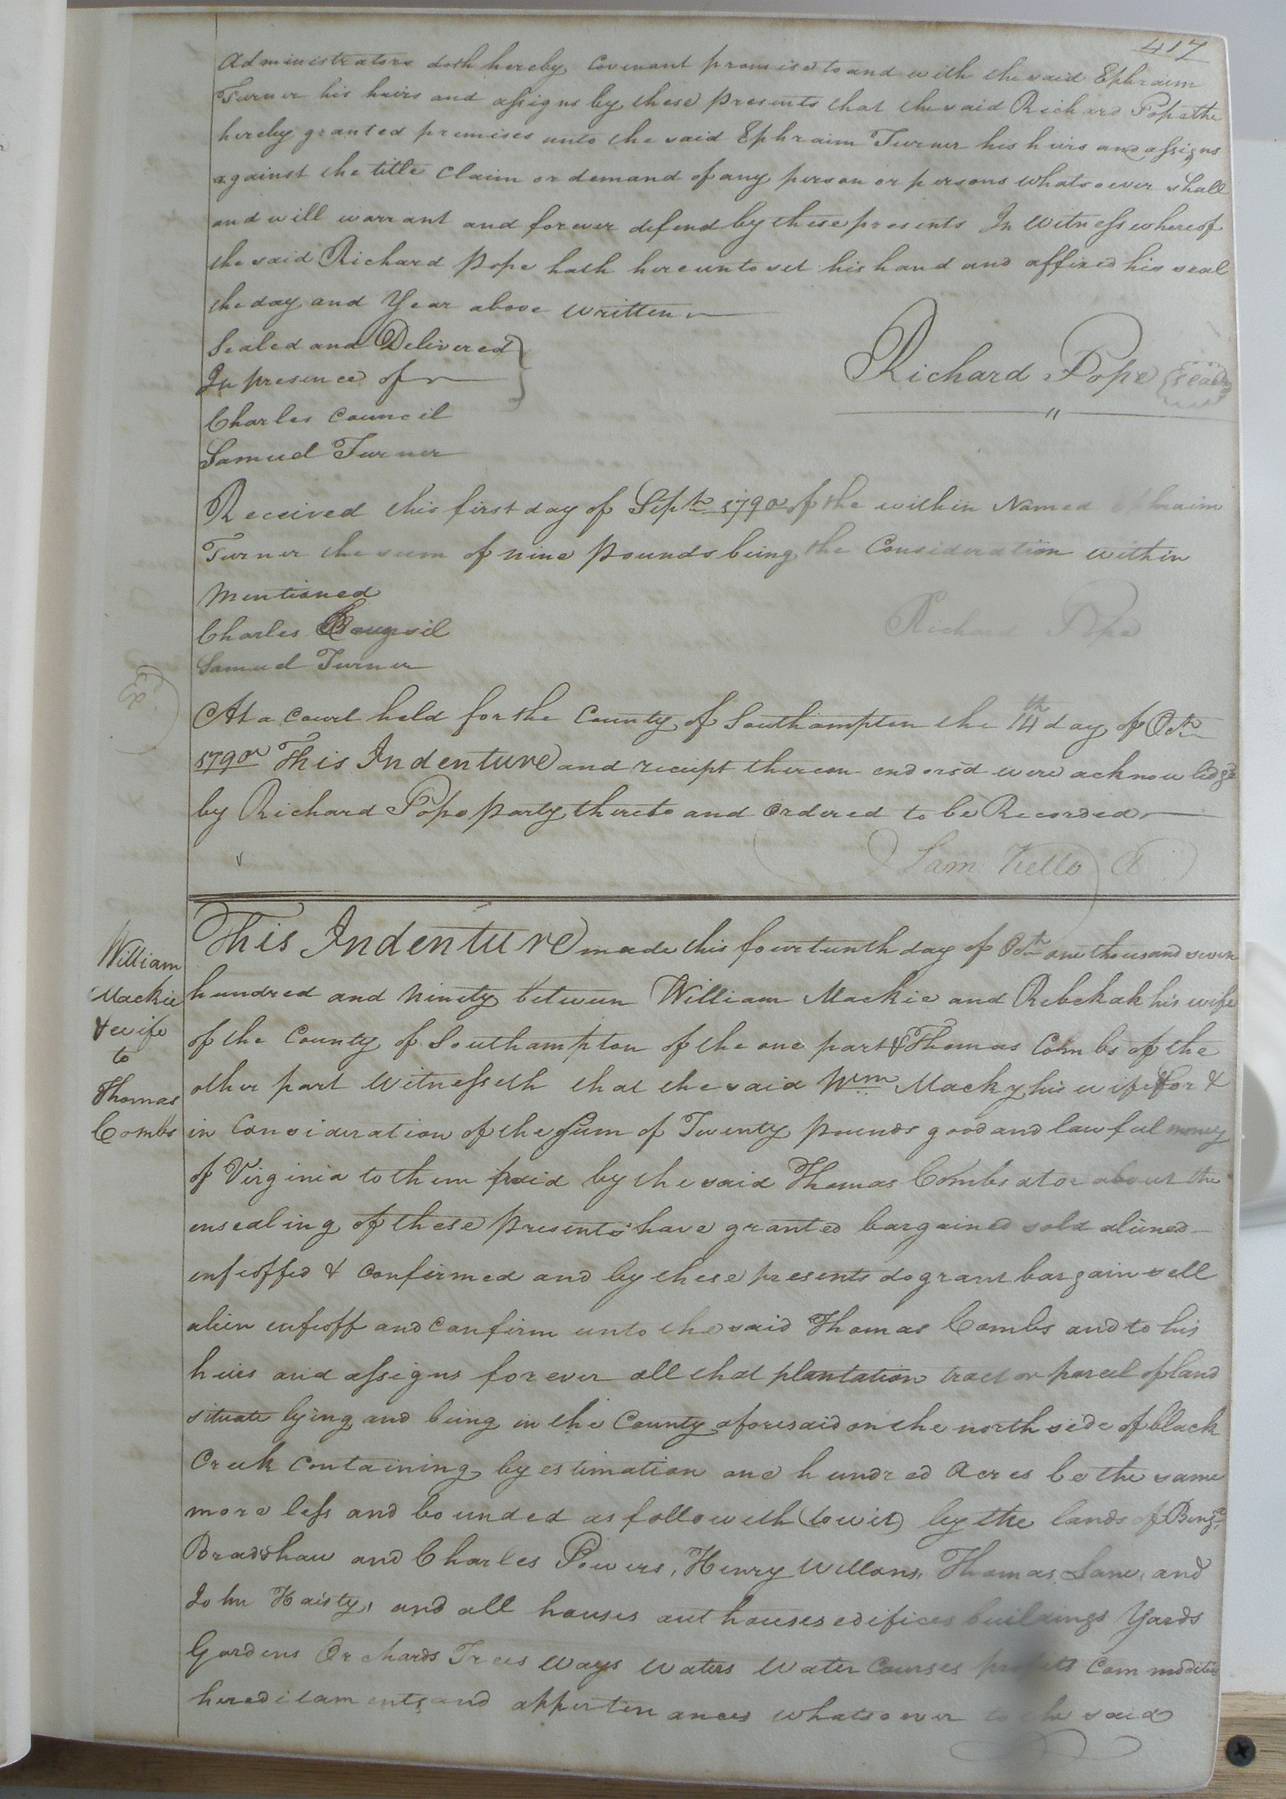 417
Administrators doth hereby Covenant promise to and with the said Ephraim
Turner his heirs and assigns by these presents that the said Richard Pope the
hereby granted premises unto the said Ephraim Turner his heirs and assigns
against the title Claim or demand of any person or persons whatsoever shall
and will warrant and forever defend by these presents In Witness whereof
the said Richard Pope hath hereunto set his hand and affixed his seal
the day and Year above written
Sealed and Delivered
In presence of
Richard Pope (seal)
Charles Council
Samuel Turner
Received this first day of Sepr. 1790 of the within Named Ephraim
Turner the sum of nine pounds being the Consideration within
Mentioned
Richard Pope
Charles Council
Samuel Turner
At a Court held for the County of Southampton the 14th day of Octr.
1790 This Indenture and receipt thereon endors'd were acknowledg'd
by Richard Pope party thereto and Ordered to be Recorded
Sam Kello
William
Mackie
& wife
to
Thomas
Combs
This Indenture made this fourteenth day of Octr. one thousand seven
hundred and ninety between William Mackie and Rebekah his wife
of the County of Southampton of the one part & Thomas Combs of the
other part Witnesseth that the said Wm. Macky his wife for &
in Consideration of the Sum of Twenty pounds good and lawful money
of Virginia to them paid by the said Thomas Combs at or about the
ensealing of these presents have granted bargained sold aliened
enfeoffed & Confirmed and by these presents do grant bargain sell
alien enfeoff and Confirm unto the said Thomas Combs and to his
heirs and assigns forever all that plantation tract or parcel of land
situate lying and being in the County aforesaid on the north side of black
Creek Containing by estimation one hundred Acres be the same
more less and bounded as followeth (towit) by the lands of Benja.
Bradshaw and Charles Powers, Henry Wellons, Thomas Lane, and
John Haisty, and all houses out houses edifices buildings Yards
Gardens Orchards Trees Ways Waters Water Courses profits Commodities
hereditaments and appurtenances whatsoever to the said